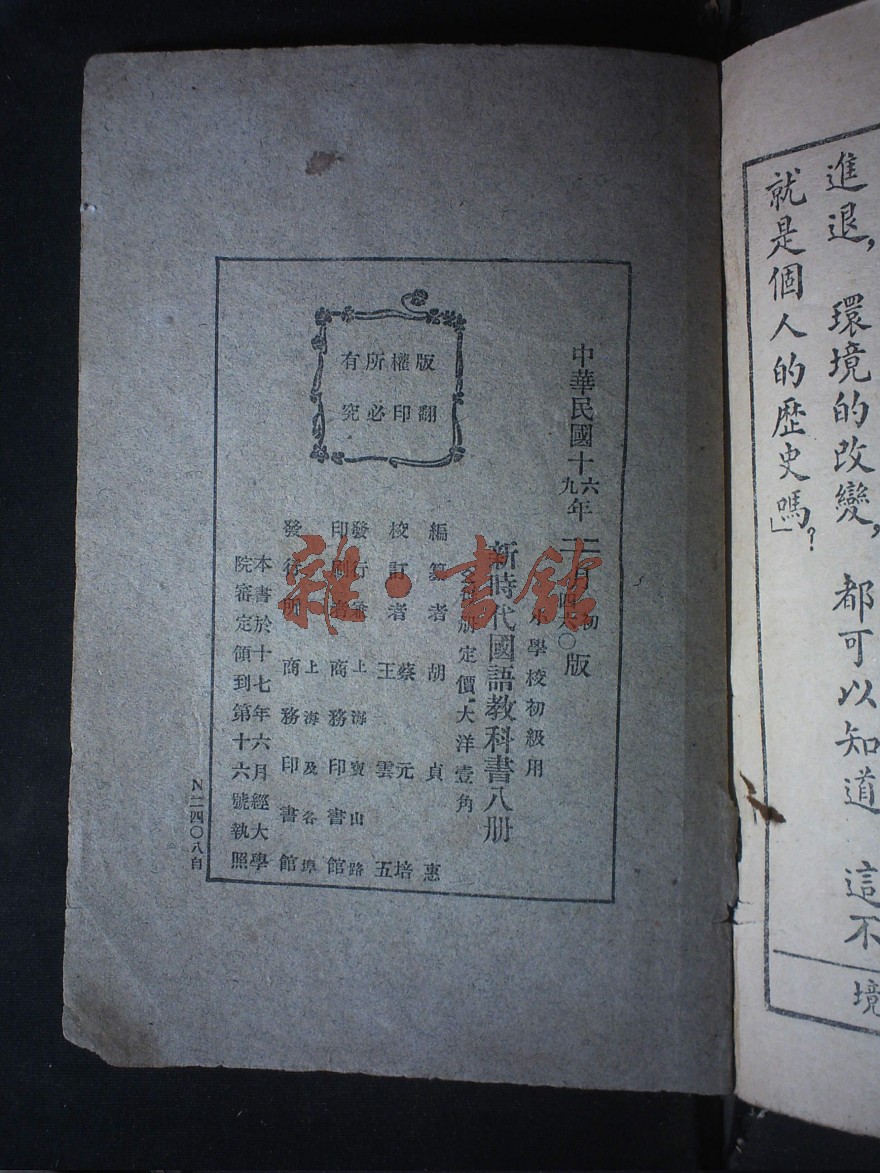 進退，環境的改變，都可以知道這不
就是個人的歷史嗎？」
境
版權所有
翻印必究
中華民國十六年
九
初
版
小學校初級用
新時代國語教科書八册
册定價大洋壹角
編纂者 胡貞惠
校訂者 蔡元培
王雲五
發行兼 上海寶山路
印刷者 商務印書館
發行所 上海及各埠
商務印書館
本書於十七年六月經大學
院審定領到第十六號執照
N二四〇八自
雜·書館